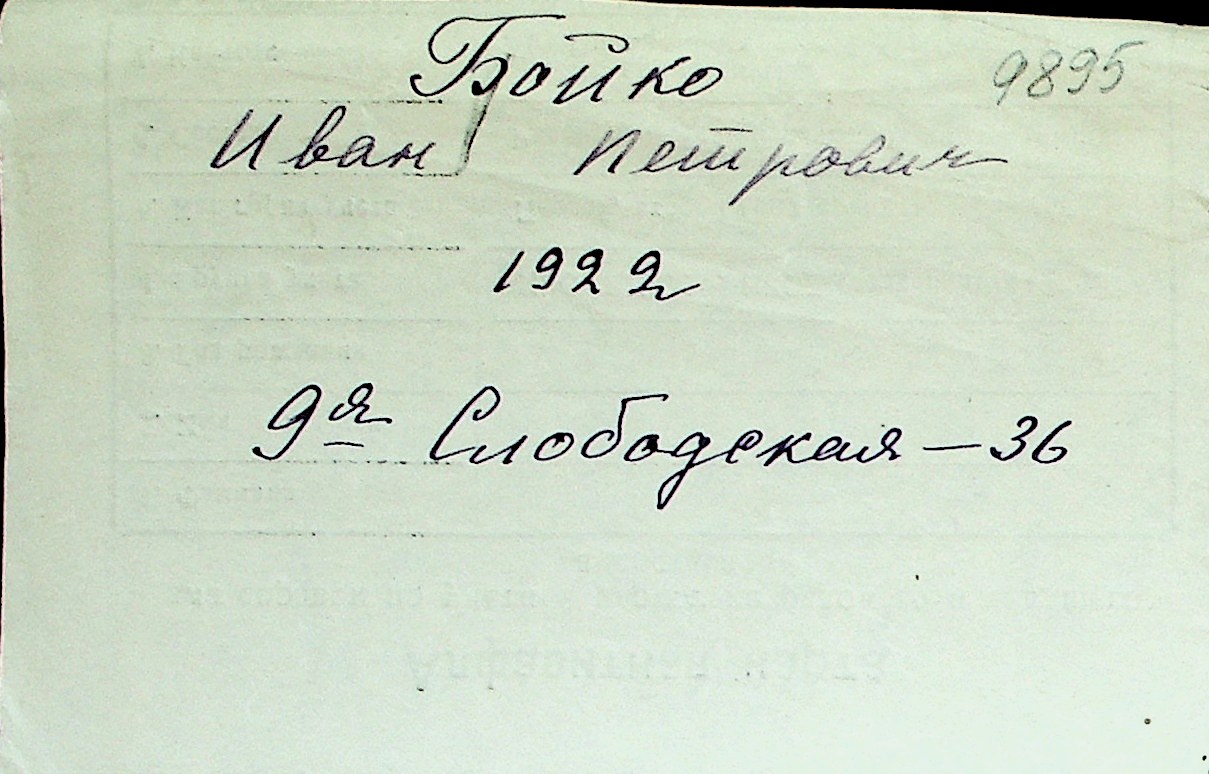 Бойко 9895
Иван Петрович
1922
9я Слободская - 36